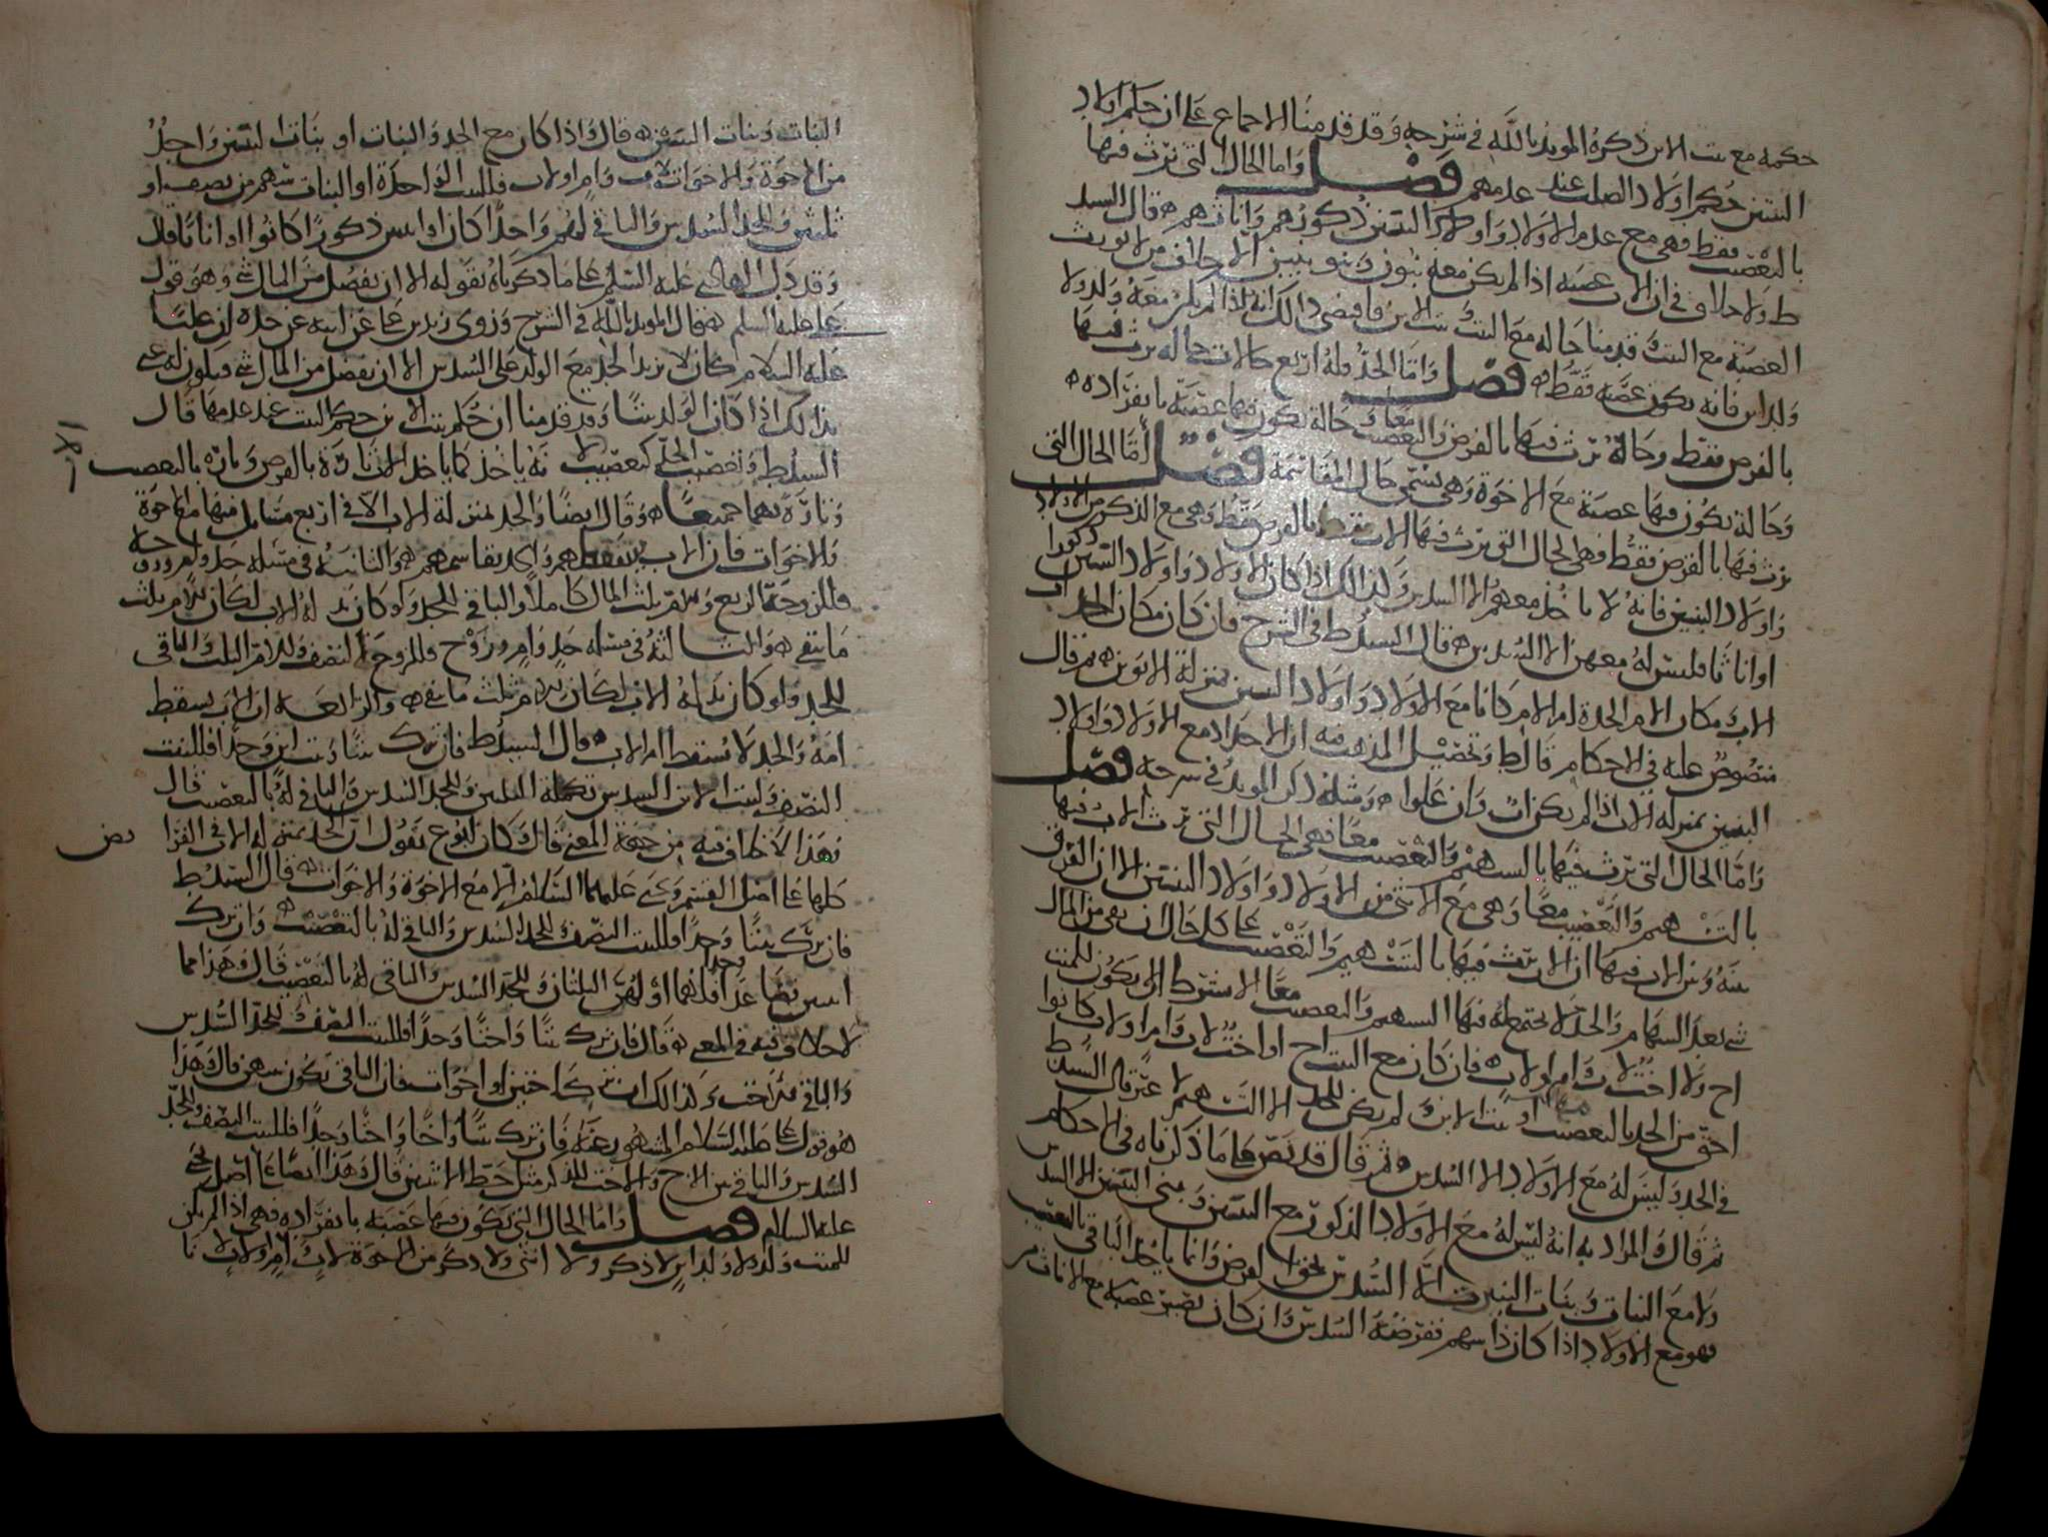 حكمه مع بنت الابن ذكره المويد بالله في شرحه وقد قدمنا الاجماع على ان حكم اولاد
البنين حكم اولاد الصلب عند عدمهم فصل واما الحال التي يرث فيها
بالتعصيب فقط فهي مع عدم الاولاد واولاد البنين ذكورهم واناثهم قال السيد
ط ولا خلاف في ان الاب عصبه اذا لم يكن معه بنون وبنو بنين
العصبة مع البنت وقد منا حاله مع البنت وبنت الابن فاقتضى ذالك انه اذا لم يكن معه ولد ولا
ولد ابن فانه يكون عصبه فقط فصل واما الجد فله اربع حالات حاله يرث فيها
بالفرض فقط وحالة يرث فيها بالفرض والتعصيب معا وحالة يكون فيها عصبة بانفراده
وحالة يكون فيها عصبة مع الاخوة وهي تسمى حال المقاسمة فصل اما الحال التي
يرث فيها بالفرض فقط فهي الحال التي يرث فيها الاب بالفرض فقط وهي مع الذكر من الاولاد
واولاد البنين فانه لا ياخذ معهم الا السدس وكذالك اذا كان الاولاد واولاد البنين ذكورا
او اناثا فليس له معهن الا السدس قال السيد ط في الشرح فان كان مكان الجد اب
الاب مكان الام الجدة ام الام كانا مع الاولاد واولاد البنين بمنزلة الابوين ثم قال
منصوص عليه في الاحكام قال ط وتحصيل المذهب فيه ان الاجداد مع الاولاد واولاد
البنين بمنزله الاب اذا لم يكن اب وان علوا ومثله ذكر المويد في شرحه فصل
واما الحال التي يرث فيها بالسهم والتعصيب معا فهي الحال التي يرث الاب فيها
بالتسهيم والتعصيب معا وهي مع الانثى من الاولاد واولاد البنين الا ان الفرق
بينه وبين الاب فيها ان الاب يرث فيها بالتسهيم والتعصيب على كل حال ان بقي من المال
شي بعد السهام والجد لا يجتمع له فيها السهم والتعصيب معا الا بشرط ان لا يكون للميت
اخ ولا اخت لاب وام او لاب فان كان مع البنت اخ او اخت لاب وام او لاب كانوا
احق من الجد بالتعصيب او بنت الابن لم يكن للجد الا السهم لا غير قال السيد ط
في الجد وليس له مع الاولاد الا السدس ثم قال قد نص على ما ذكرناه في الاحكام
ثم قال والمراد به انه ليس له مع الاولاد الذكور مع البنين وبني البنين الا السدس
ولا مع البنات وبنات البنين الا السدس بحق الفرض وانما ياخذ الباقي بالتعصيب
فهو مع الاولاد اذا كان ذا سهم ففرضه السدس وان كان يصير عصبة مع الاناث من
البنات وبنات البنين قال واذا كان مع الجد والبنات او بنات البنين واحد
من الاخوة والاخوات لاب وام او لاب فللبنت الواحدة او البنات سهمهم من نصف او
ثلثين وللجد السدس والباقي لهم واحدا كان او اثنين ذكورا كانوا او اناثا قال
وقد دل الهادي عليه السلم على ما ذكرناه بقوله الا ان يفضل من المال شي وهو قول
علي عليه السلم قال المويد بالله في الشرح وروى زيد بن علي عن ابيه عن جده ان عليا
عليه السلام كان لا يزيد الجد مع الولد على السدس الا ان يفضل من المال شي فيكون له
بذالك اذا كان الولد بنتا وقد قدمنا ان حكم بنت الابن حكم البنت عند عدمها قال
السيد ط وتعصيب الجد كتعصيب الاب لانه ياخذ كما ياخذ الاب تارة بالفرض وتارة بالتعصيب
وتارة بهما جميعا وقال ايضا والجد بمنزلة الاب الا في اربع مسايل منها مع الاخوة
والاخوات فان الاب يسقطهم والجد يقاسمهم والثانية في مسله جد وام وزوجه
فللزوجة الربع وللام ثلث المال كاملا والباقي للجد ولو كان بدله الاب لكان للام ثلث
ما بقي والثالثة في مسله جد وام وزوج وللزوج النصف وللام الثلث والباقي
للجد ولو كان بدله الاب لكان للام ثلث ما بقي والرابعه ان الاب يسقط
امه والجد لا يسقط ام الاب قال السيد ط فان ترك بنتا وبنت ابن وجدا فللبنت
النصف ولبنت الابن السدس تكمله الثلثين وللجد السدس والباقي له بالتعصيب قال
وهذا لا خلاف فيه من جهة المعنى قال وكان ابو ع يقول ان الجد بمنزلة الاب في الفرا
يض
كلها على اصل القسم ويحيى عليهما السلام الا مع الاخوة والاخوات قال السيد ط
فان ترك بنتا وجدا فللبنت النصف وللجد السدس والباقي له بالتعصيب وان ترك
ابنتين فصاعدا وجدا فلهما او لهن الثلثان وللجد السدس والباقي له بالتعصيب قال وهذا مما
لا خلاف فيه في المعنى قال فان ترك بنتا واختا وجدا فللبنت النصف وللجد السدس
والباقي للاخت وكذالك ان ترك اختين او اخوات فان الباقي يكون بينهن قال وهذا
هو قول علي عليه السلام المشهور عنه فان ترك بنتا واخا واختا وجدا فللبنت النصف وللجد
السدس والباقي بين الاخ والاخت للذكر مثل حظ الانثيين قال وهذا ايضا على اصل يحيى
عليه السلام فصل واما الحال التي يكون فيها عصبه بانفراده فهي اذا لم يكن
للميت ولد ولا ولد ابن لا ذكر ولا انثى ولا ذكر من الاخوة لاب وام او لاب